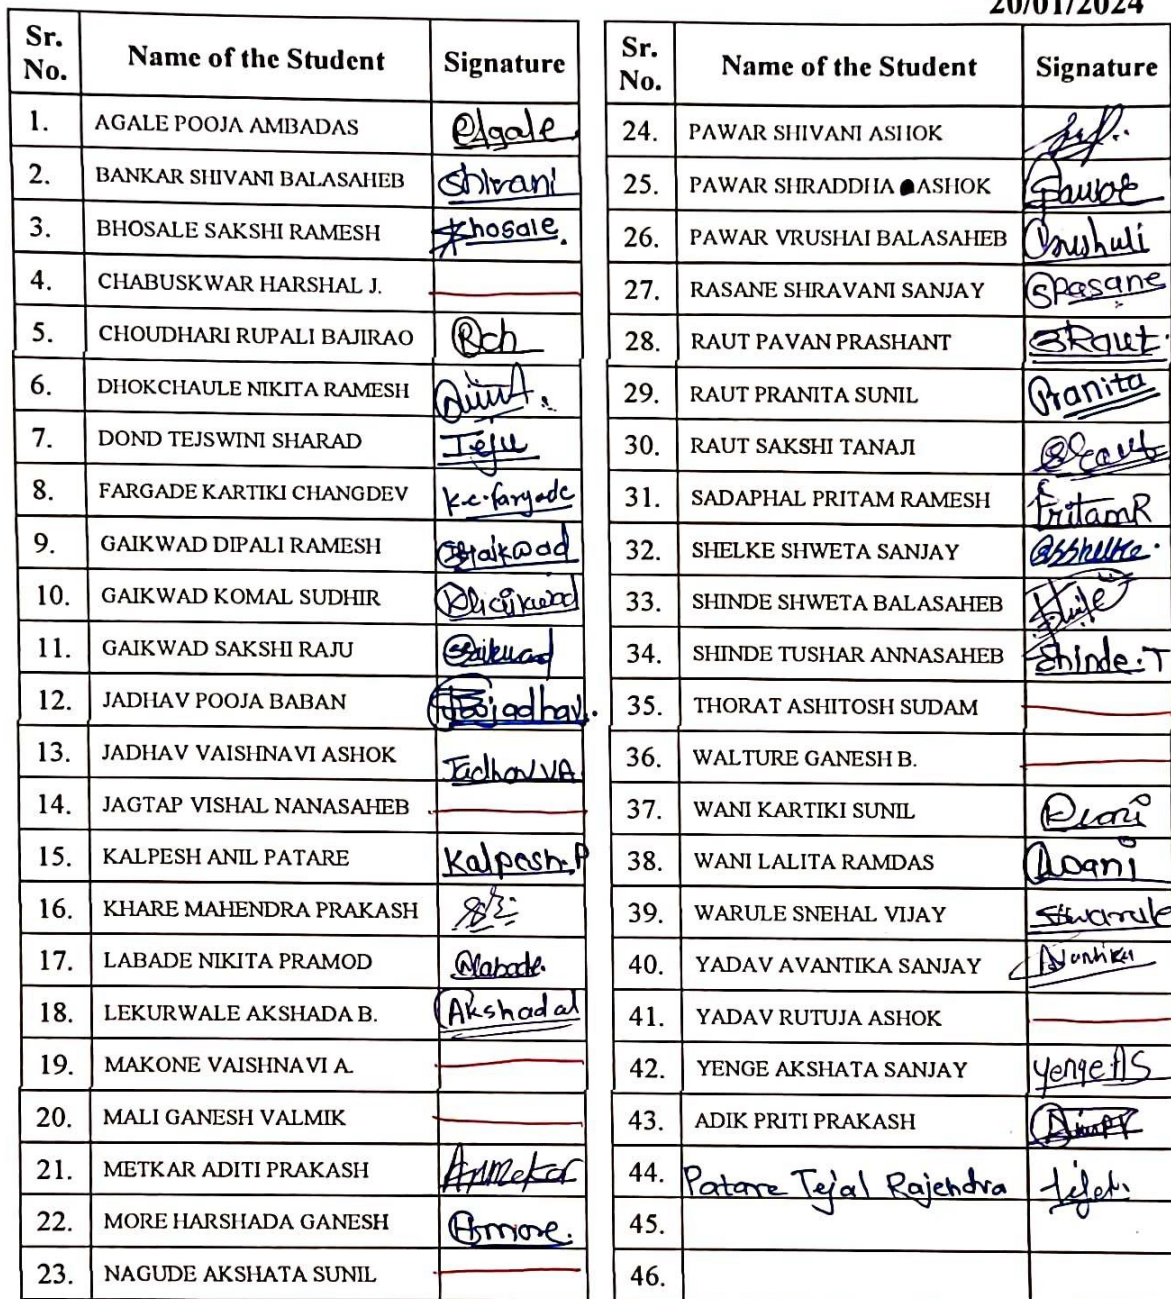 20/01/2024
Sr. No. Name of the Student Signature
1. AGALE POOJA AMBADAS Agale
2. BANKAR SHIVANI BALASAHEB Shivani
3. BHOSALE SAKSHI RAMESH Bhosale.
4. CHABUSKWAR HARSHAL J.
5. CHOUDHARI RUPALI BAJIRAO Rch
6. DHOKCHAULE NIKITA RAMESH
7. DOND TEJSWINI SHARAD Teju
8. FARGADE KARTIKI CHANGDEV K.C.fargade
9. GAIKWAD DIPALI RAMESH Gaikwad
10. GAIKWAD KOMAL SUDHIR
11. GAIKWAD SAKSHI RAJU Gaikwad
12. JADHAV POOJA BABAN
13. JADHAV VAISHNAVI ASHOK Jadhav VA
14. JAGTAP VISHAL NANASAHEB
15. KALPESH ANIL PATARE Kalpesh.P
16. KHARE MAHENDRA PRAKASH
17. LABADE NIKITA PRAMOD Nlabade.
18. LEKURWALE AKSHADA B. Akshadal
19. MAKONE VAISHNAVI A.
20. MALI GANESH VALMIK
21. METKAR ADITI PRAKASH
22. MORE HARSHADA GANESH Hmore.
23. NAGUDE AKSHATA SUNIL
Sr. No. Name of the Student Signature
24. PAWAR SHIVANI ASHOK
25. PAWAR SHRADDHA ASHOK Pawar
26. PAWAR VRUSHAI BALASAHEB Vrushali
27. RASANE SHRAVANI SANJAY SRasane
28. RAUT PAVAN PRASHANT
29. RAUT PRANITA SUNIL Pranita
30. RAUT SAKSHI TANAJI
31. SADAPHAL PRITAM RAMESH PritamR
32. SHELKE SHWETA SANJAY
33. SHINDE SHWETA BALASAHEB
34. SHINDE TUSHAR ANNASAHEB Shinde.T
35. THORAT ASHITOSH SUDAM
36. WALTURE GANESH B.
37. WANI KARTIKI SUNIL
38. WANI LALITA RAMDAS
39. WARULE SNEHAL VIJAY Swarule
40. YADAV AVANTIKA SANJAY Avantika
41. YADAV RUTUJA ASHOK
42. YENGE AKSHATA SANJAY Yenge AS
43. ADIK PRITI PRAKASH
44. Patare Tejal Rajendra Tejal.
45.
46.